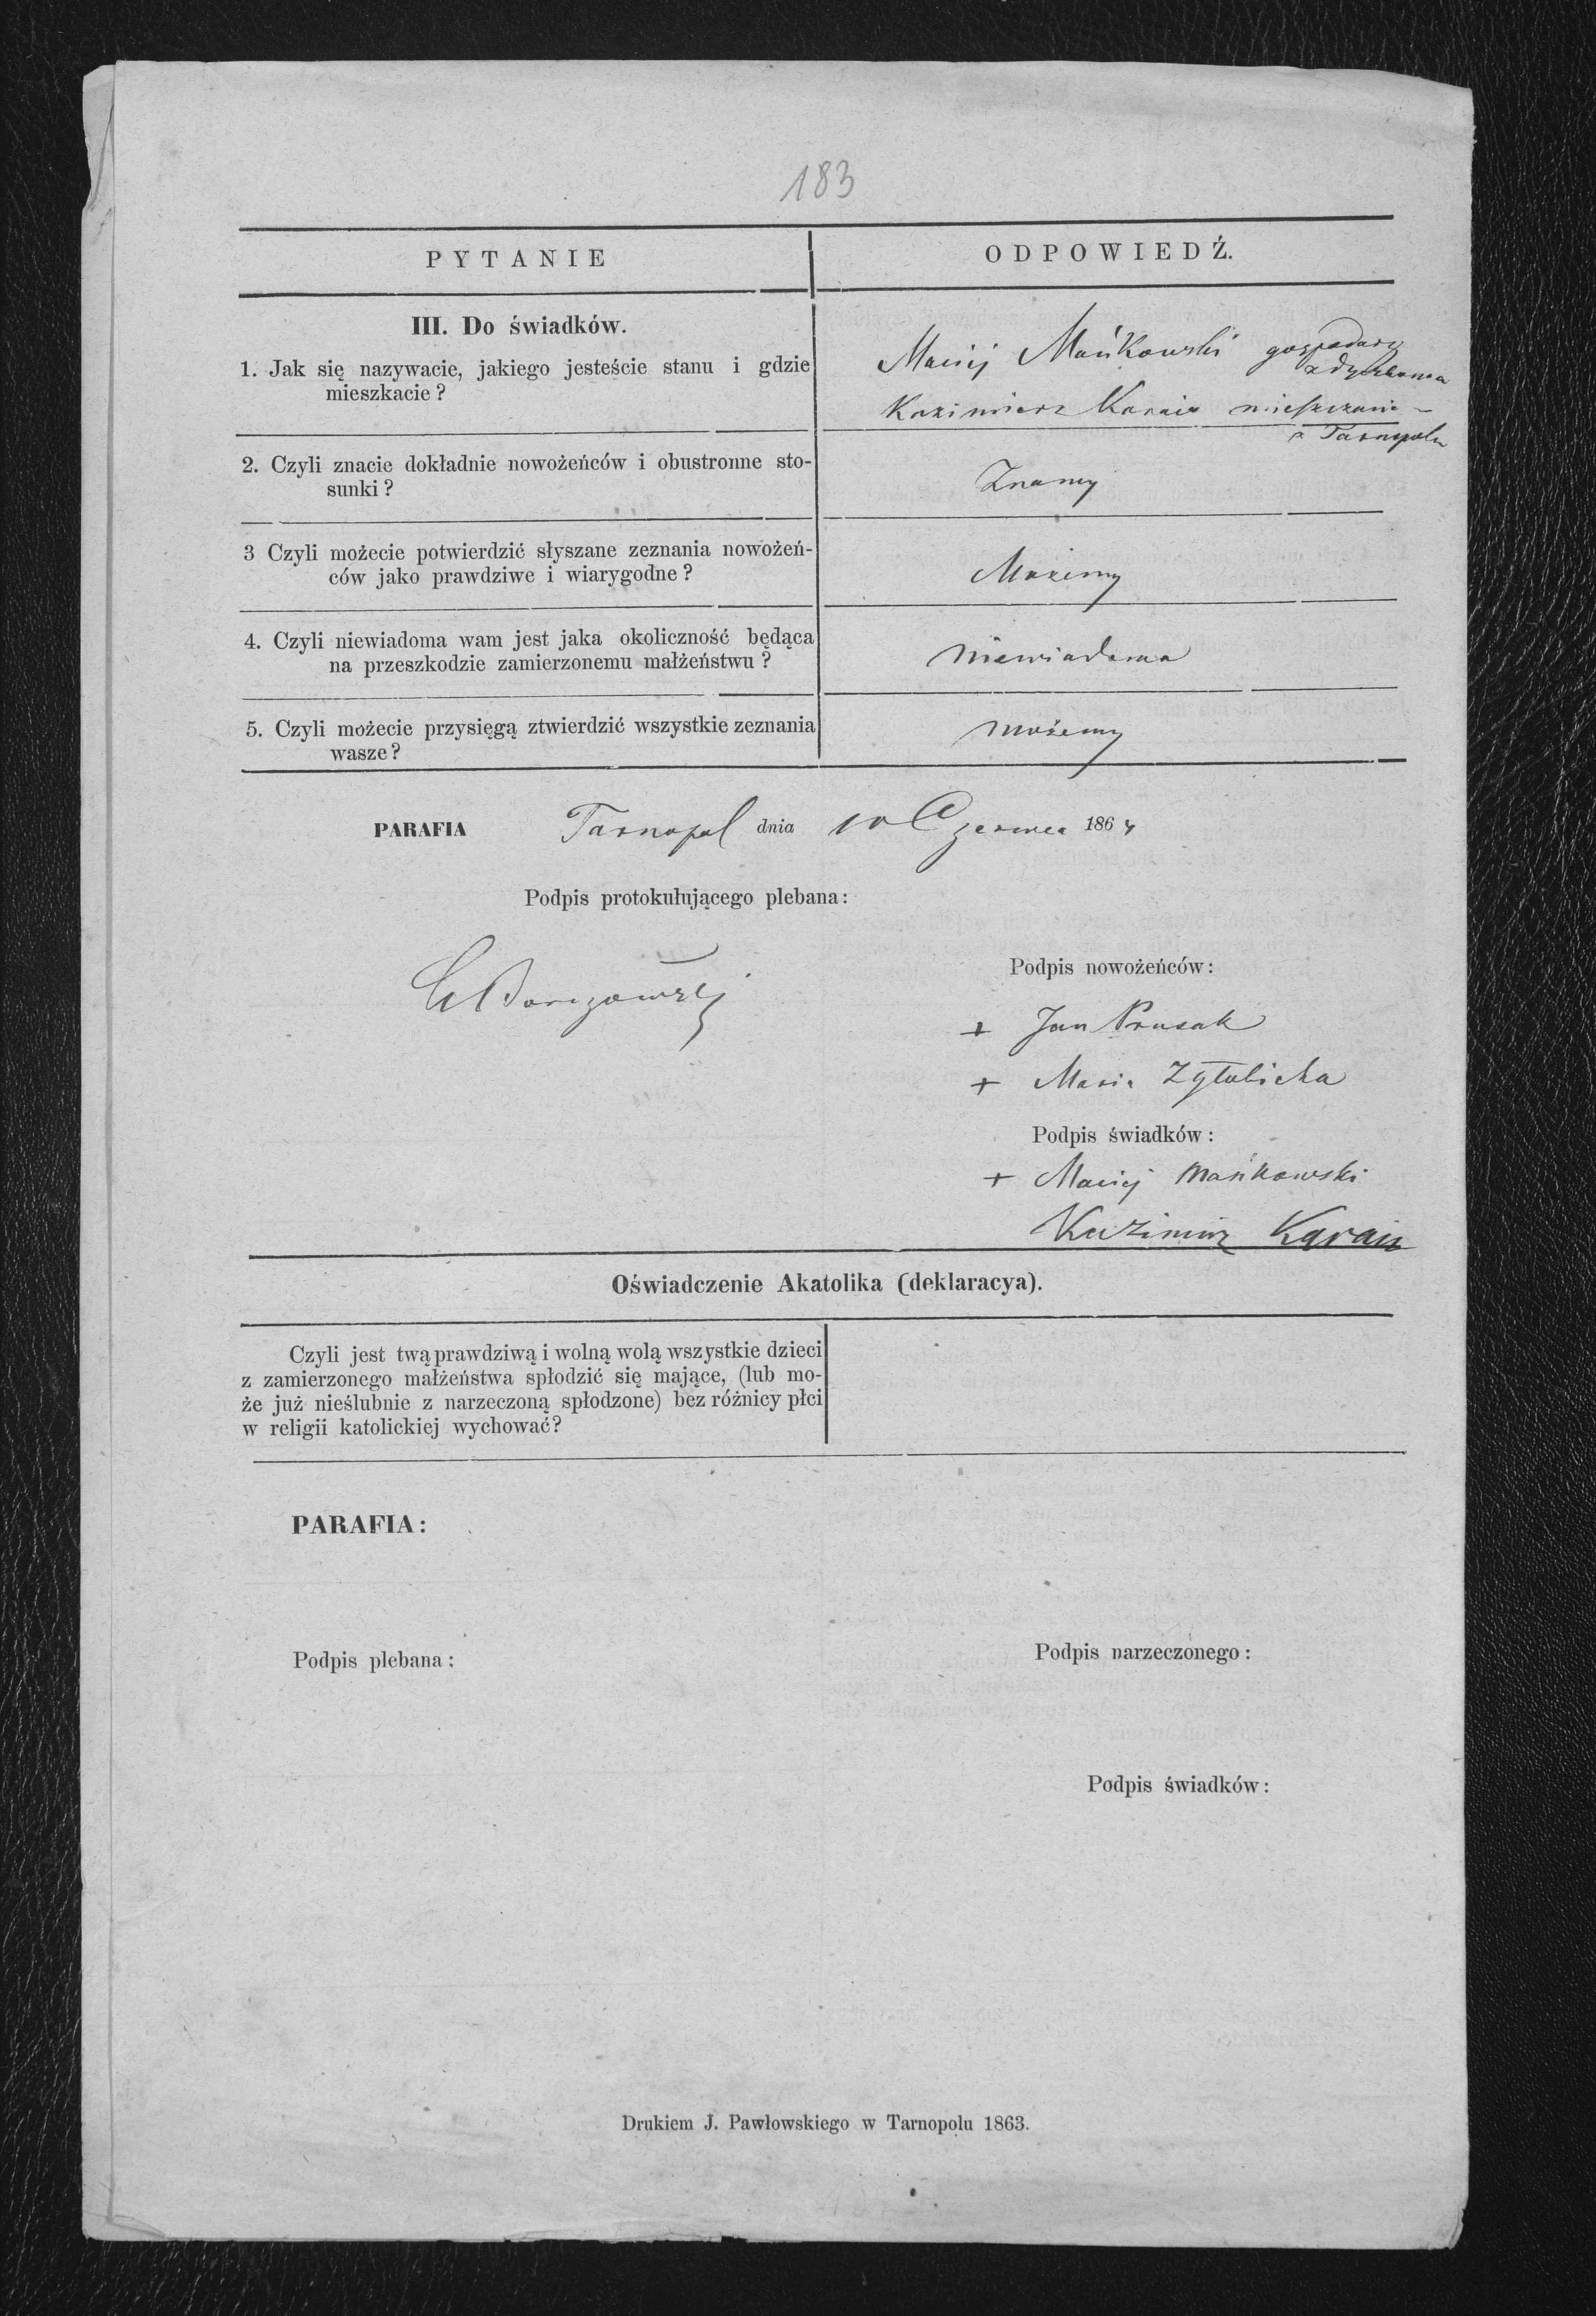 183
PYTANIE
ODPOWIEDŹ.
III. Do świadków.
1. Jak się nazywacie, jakiego jesteście stanu i gdzie
mieszkacie?
Maciej Mańkowski gospodarz
Kazimierz mieszczanin
z Tarnopola
2. Czyli znacie dokładnie nowożeńców i obustronne sto-
sunki?
Znamy
3 Czyli możecie potwierdzić słyszane zeznania nowożeń-
ców jako prawdziwe i wiarygodne?
Możemy
4. Czyli niewiadoma wam jest jaka okoliczność będąca
na przeszkodzie zamierzonemu małżeństwu?
niewiadoma
5. Czyli możecie przysięgą ztwierdzić wszystkie zeznania
wasze?
możemy
PARAFIA Tarnopol dnia 10 Czerwca 1864
Podpis protokułującego plebana:
Podpis nowożeńców:
+ Jan Prusak
+ Maria Zgłobicka
Podpis świadków:
+ Maciej Mańkowski
Kazimirz
Oświadczenie Akatolika (deklaracya).
Czyli jest twą prawdziwą i wolną wolą wszystkie dzieci
z zamierzonego małżeństwa spłodzić się mające, (lub mo-
że już nieślubnie z narzeczoną spłodzone) bez różnicy płci
w religii katolickiej wychować?
PARAFIA:
Podpis plebana:
Podpis narzeczonego:
Podpis świadków:
Drukiem J. Pawłowskiego w Tarnopolu 1863.